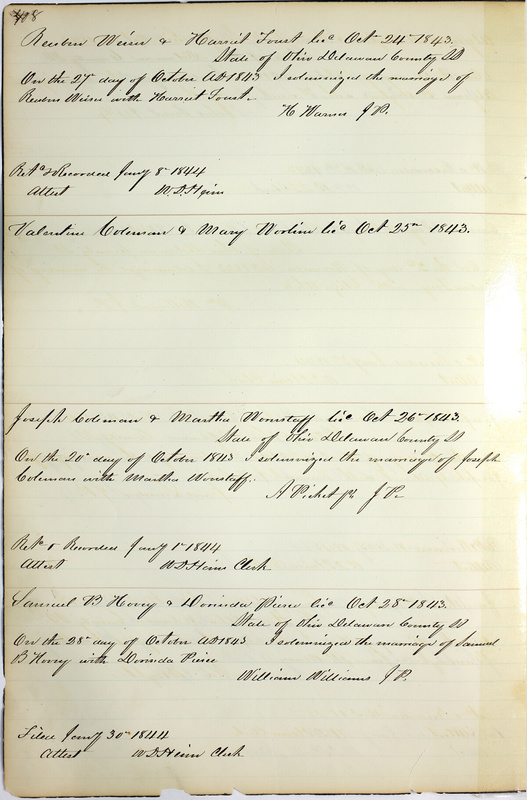 408
Reuben Weiser & Harriet Foust licᵈ Oct 24ᵗʰ 1843.
State of Ohio Delaware County SS
On the 27ᵗʰ day of October AD 1843 I solemnized the marriage of
Reuben Weiser with Harriet Foust.
H Warner J P.
Retᵈ & Recorded Jany 8ᵗʰ 1844
Attest W. D. Heim
Valentine Coleman & Mary licᵈ Oct 25ᵗʰ 1843.
Joseph Coleman & Martha Wonstaff licᵈ Oct 26ᵗʰ 1843.
State of Ohio Delaware County SS
On the day of October 1843 I solemnized the marriage of Joseph
Coleman with Martha Wonstaff.
A Picket Jr J P.
Retᵈ & Recorded Jany 1ˢᵗ 1844
Attest W D Heim Clerk
Samuel B Hovey & Dorinda Pierce licᵈ Oct 28ᵗʰ 1843.
State of Ohio Delaware County SS
On the 28ᵗʰ day of October AD 1843 I solemnized the marriage of Samuel
B Hovey with Dorinda Pierce
William Williams J P.
Filed Jany 30ᵗʰ 1844
Attest W D Heim Clerk